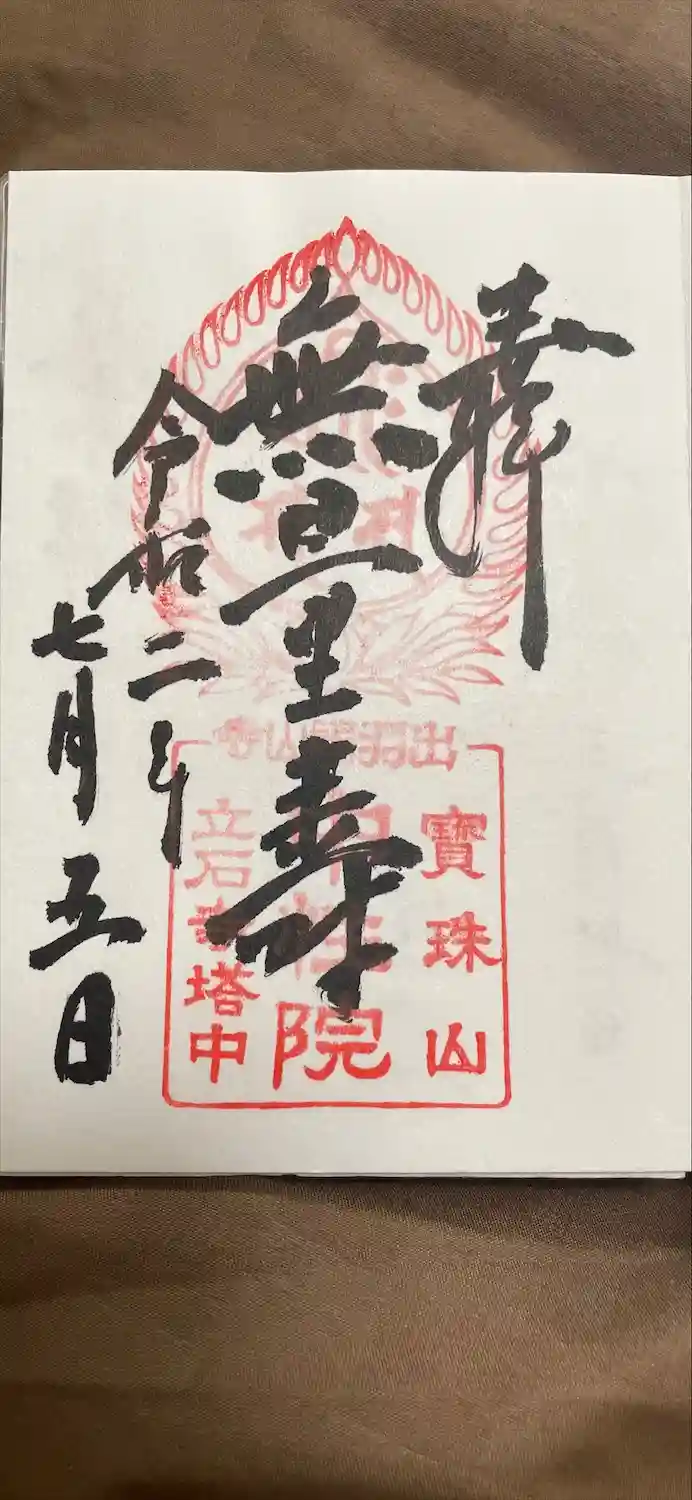 奉拝
無量壽
令和二年
七月五日
出羽國山寺
寶珠山
性相院
立石寺塔中